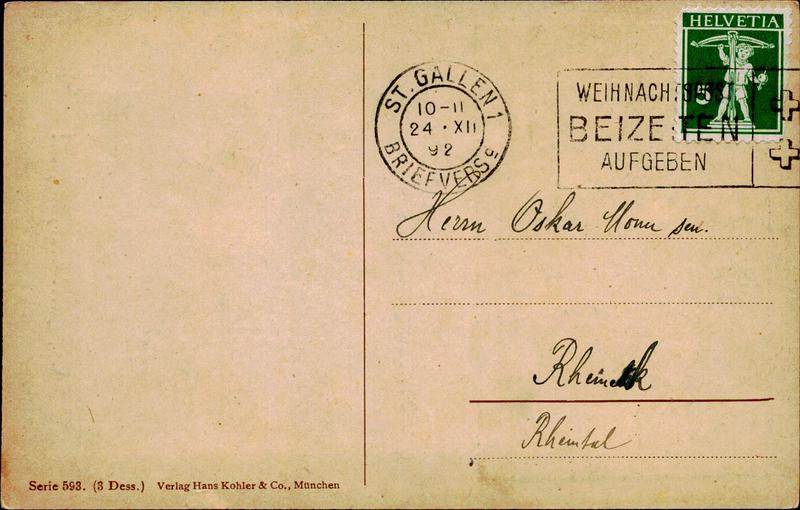 HELVETIA
ST. GALLEN 1
10-11
24·XII
92
BRIEFVERS 9
WEIHNACHTSPOST
BEIZEITEN
AUFGEBEN
Herrn Oskar sen.
Rheineck
Rheintal
Serie 593. (3 Dess.) Verlag Hans Kohler & Co., München